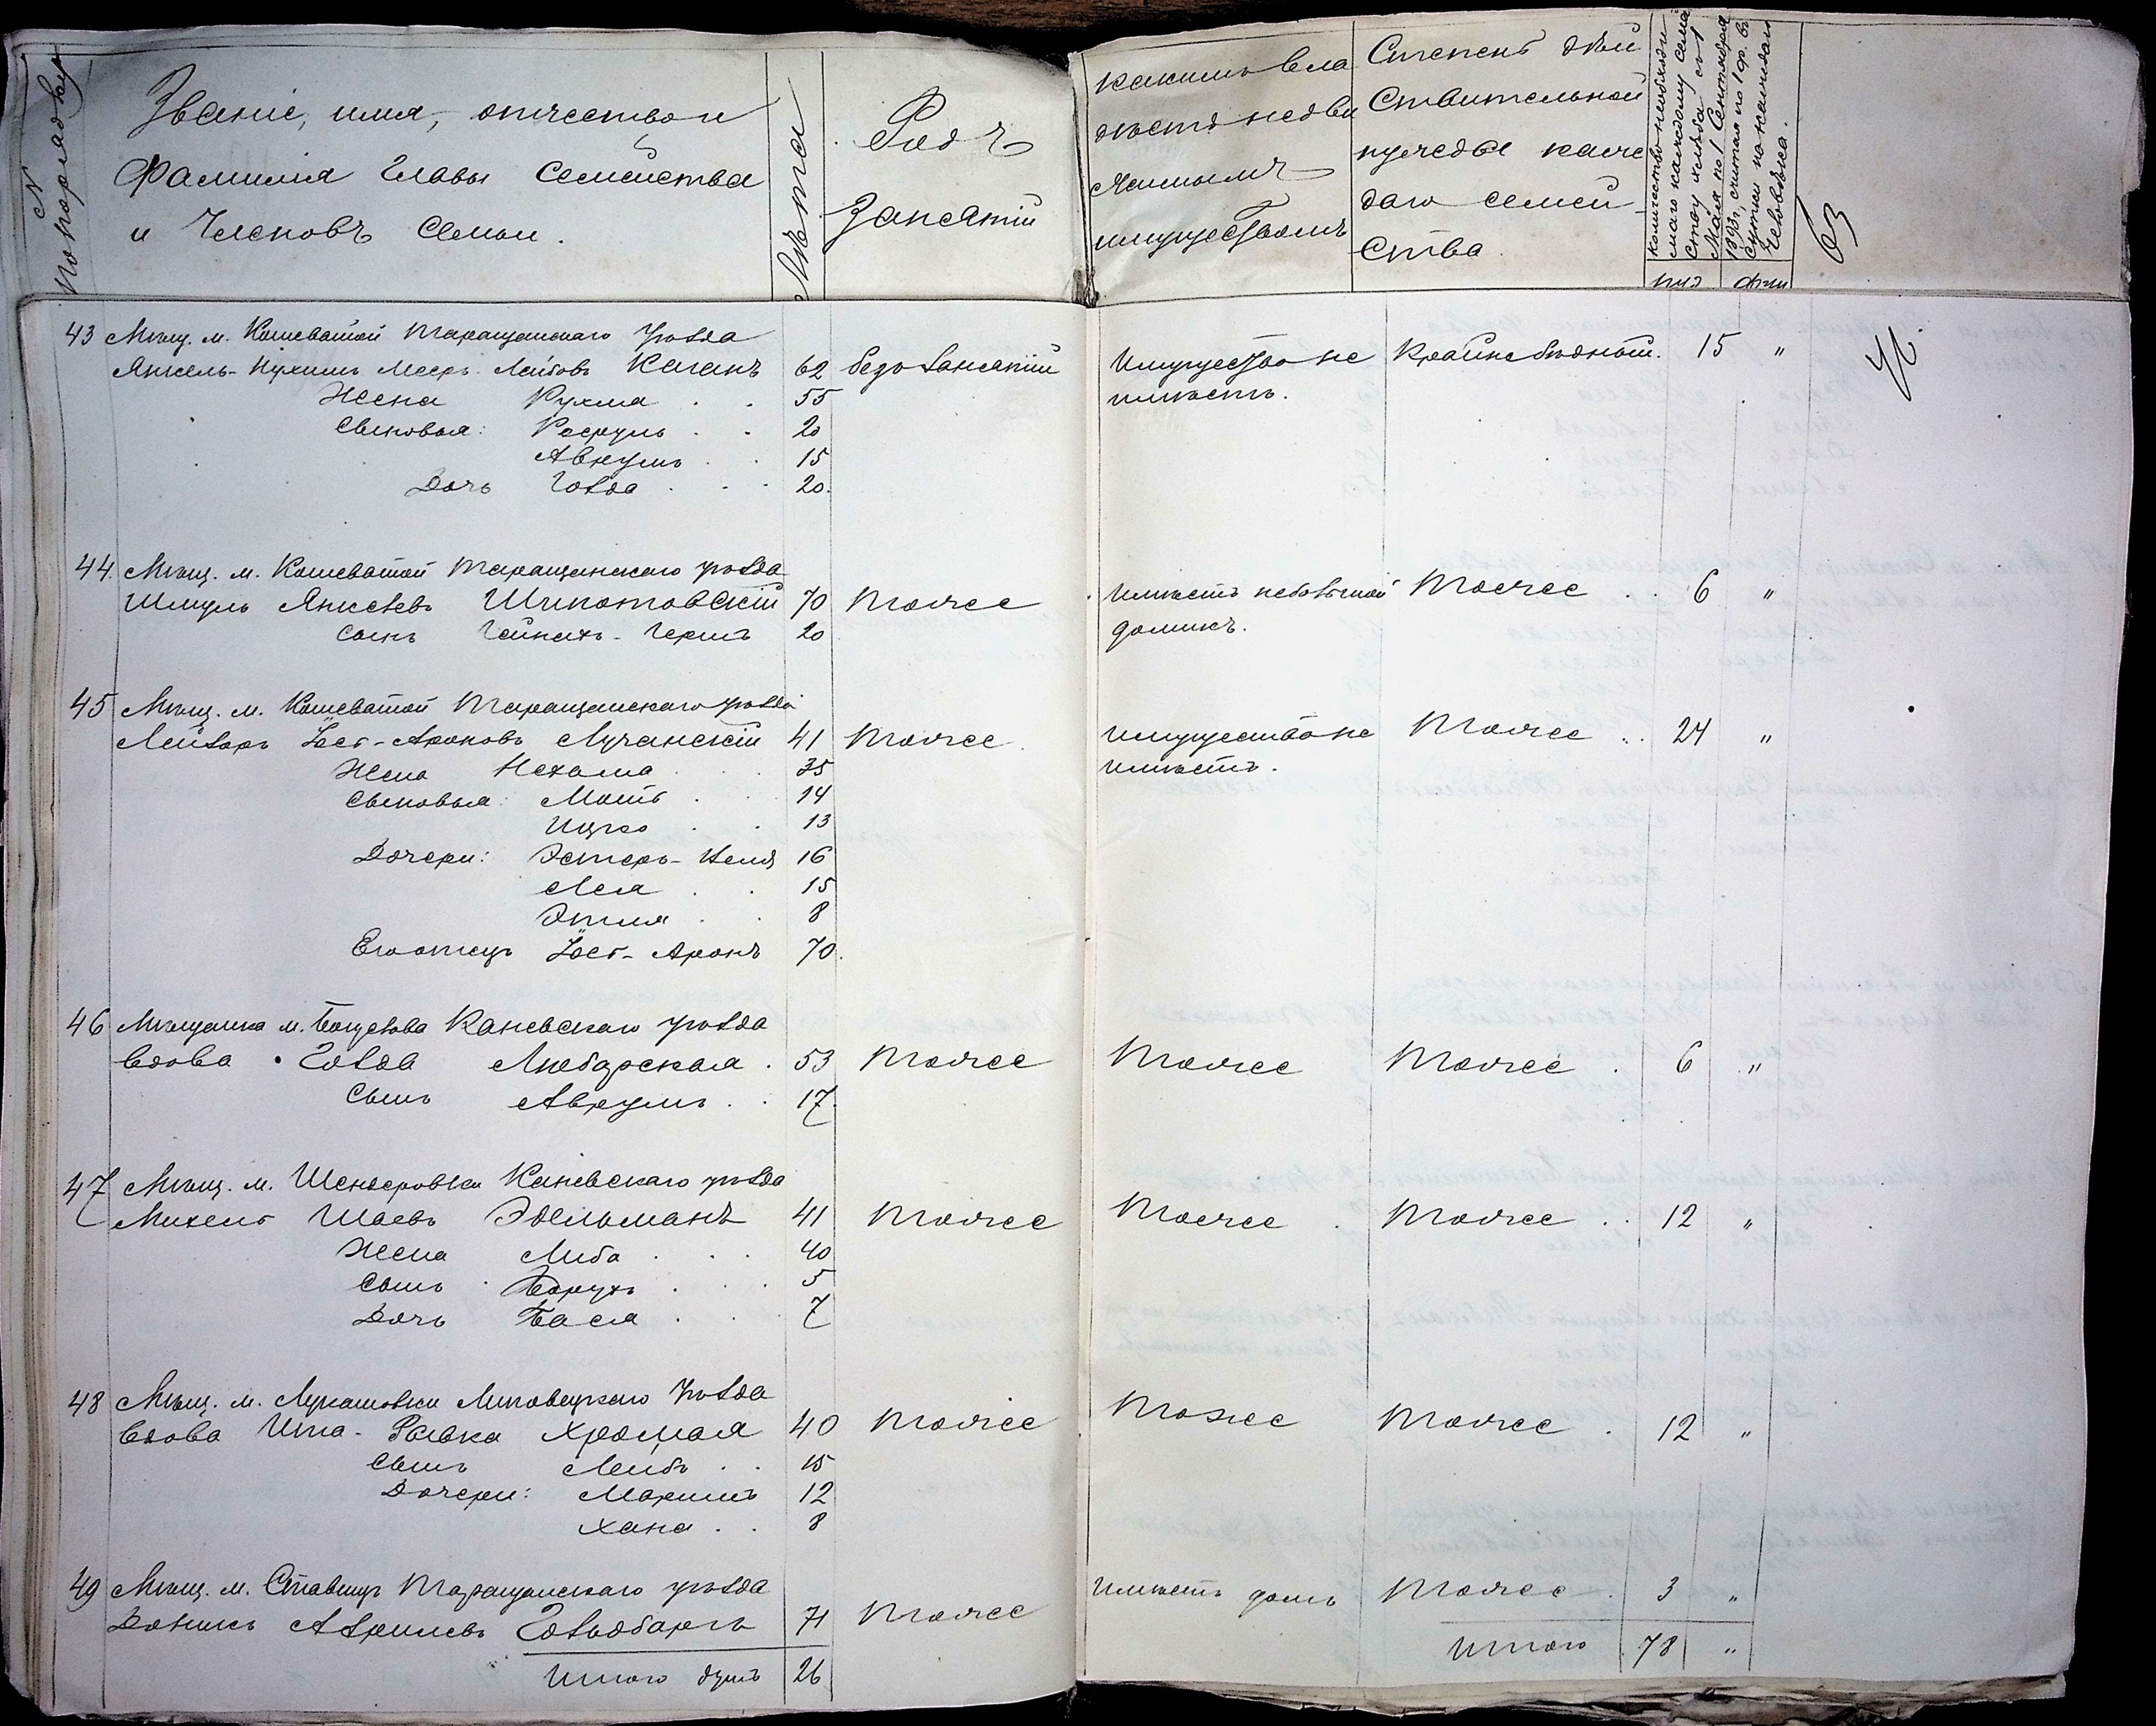 N по порядку
Званіе, имя, отчество и
фамилія главы семейства
и членовъ семьи.
Лѣта
Родъ
занятій
какимъ вла
дѣетъ недви
жимымъ
имуществомъ
Степень дѣй
ствительной
нужды каж
даго семей-
ства
количество необходи
маго каждому семей
ству хлѣба съ 1
Мая по 1 Сентября
1893 г., считая по 1 ф. въ
сутки на каждаго
человѣка.
пуд фун
63
43 Мѣщ. м. Кошеватой Таращанскаго уѣзда
Янкель-Нухимъ Меер-Лейбовъ Каганъ 62 безъ занятій Имущество не Крайне бѣдной. 15 "
Жена Рухма 55 имѣетъ.
Сыновья: 20
Аврумъ 15
Дочь Голда 20.
44 Мѣщ. м. Кошеватой Таращанскаго уѣзда
Шмуль Янкелевъ Шпотовскій 70 тоже имѣетъ небольшой тоже 6 "
Сынъ Гершъ 20 домикъ.
45 Мѣщ. м. Кошеватой Таращанскаго уѣзда
Лейзеръ Іось-Ароновъ Лучанскій 41 тоже имущество не тоже 24 "
Жена Нехама 35 имѣетъ.
Сыновья: Моть 14
Ицко 13
Дочери: Эстеръ-Неля 16
Лея 15
Этля 8
Его отецъ Іось-Аронъ 70.
46 Мѣщанка м. Богуслава Каневскаго уѣзда
Вдова Голда Любарская 53 тоже тоже тоже 6 "
Сынъ Аврумъ 17.
47 Мѣщ. м. Шендеровки Каневскаго уѣзда
Михель Шаевъ Эдельманъ 41 тоже тоже тоже 12 "
Жена Либа 40
Сынъ Борухъ 5
Дочь Бася 7
48 Мѣщ. м. Лукашовки Липовецкаго уѣзда
Вдова Ита-Рывка Хромая 40 тоже тоже тоже 12 "
Сынъ Лейбъ 15
Дочери: Маримъ 12
Хана 8
49 Мѣщ. м. Ставищъ Таращанскаго уѣзда
Гольдбаргъ 71 тоже имѣетъ домъ тоже 3 "
Итого душъ 26 Итого 78 "